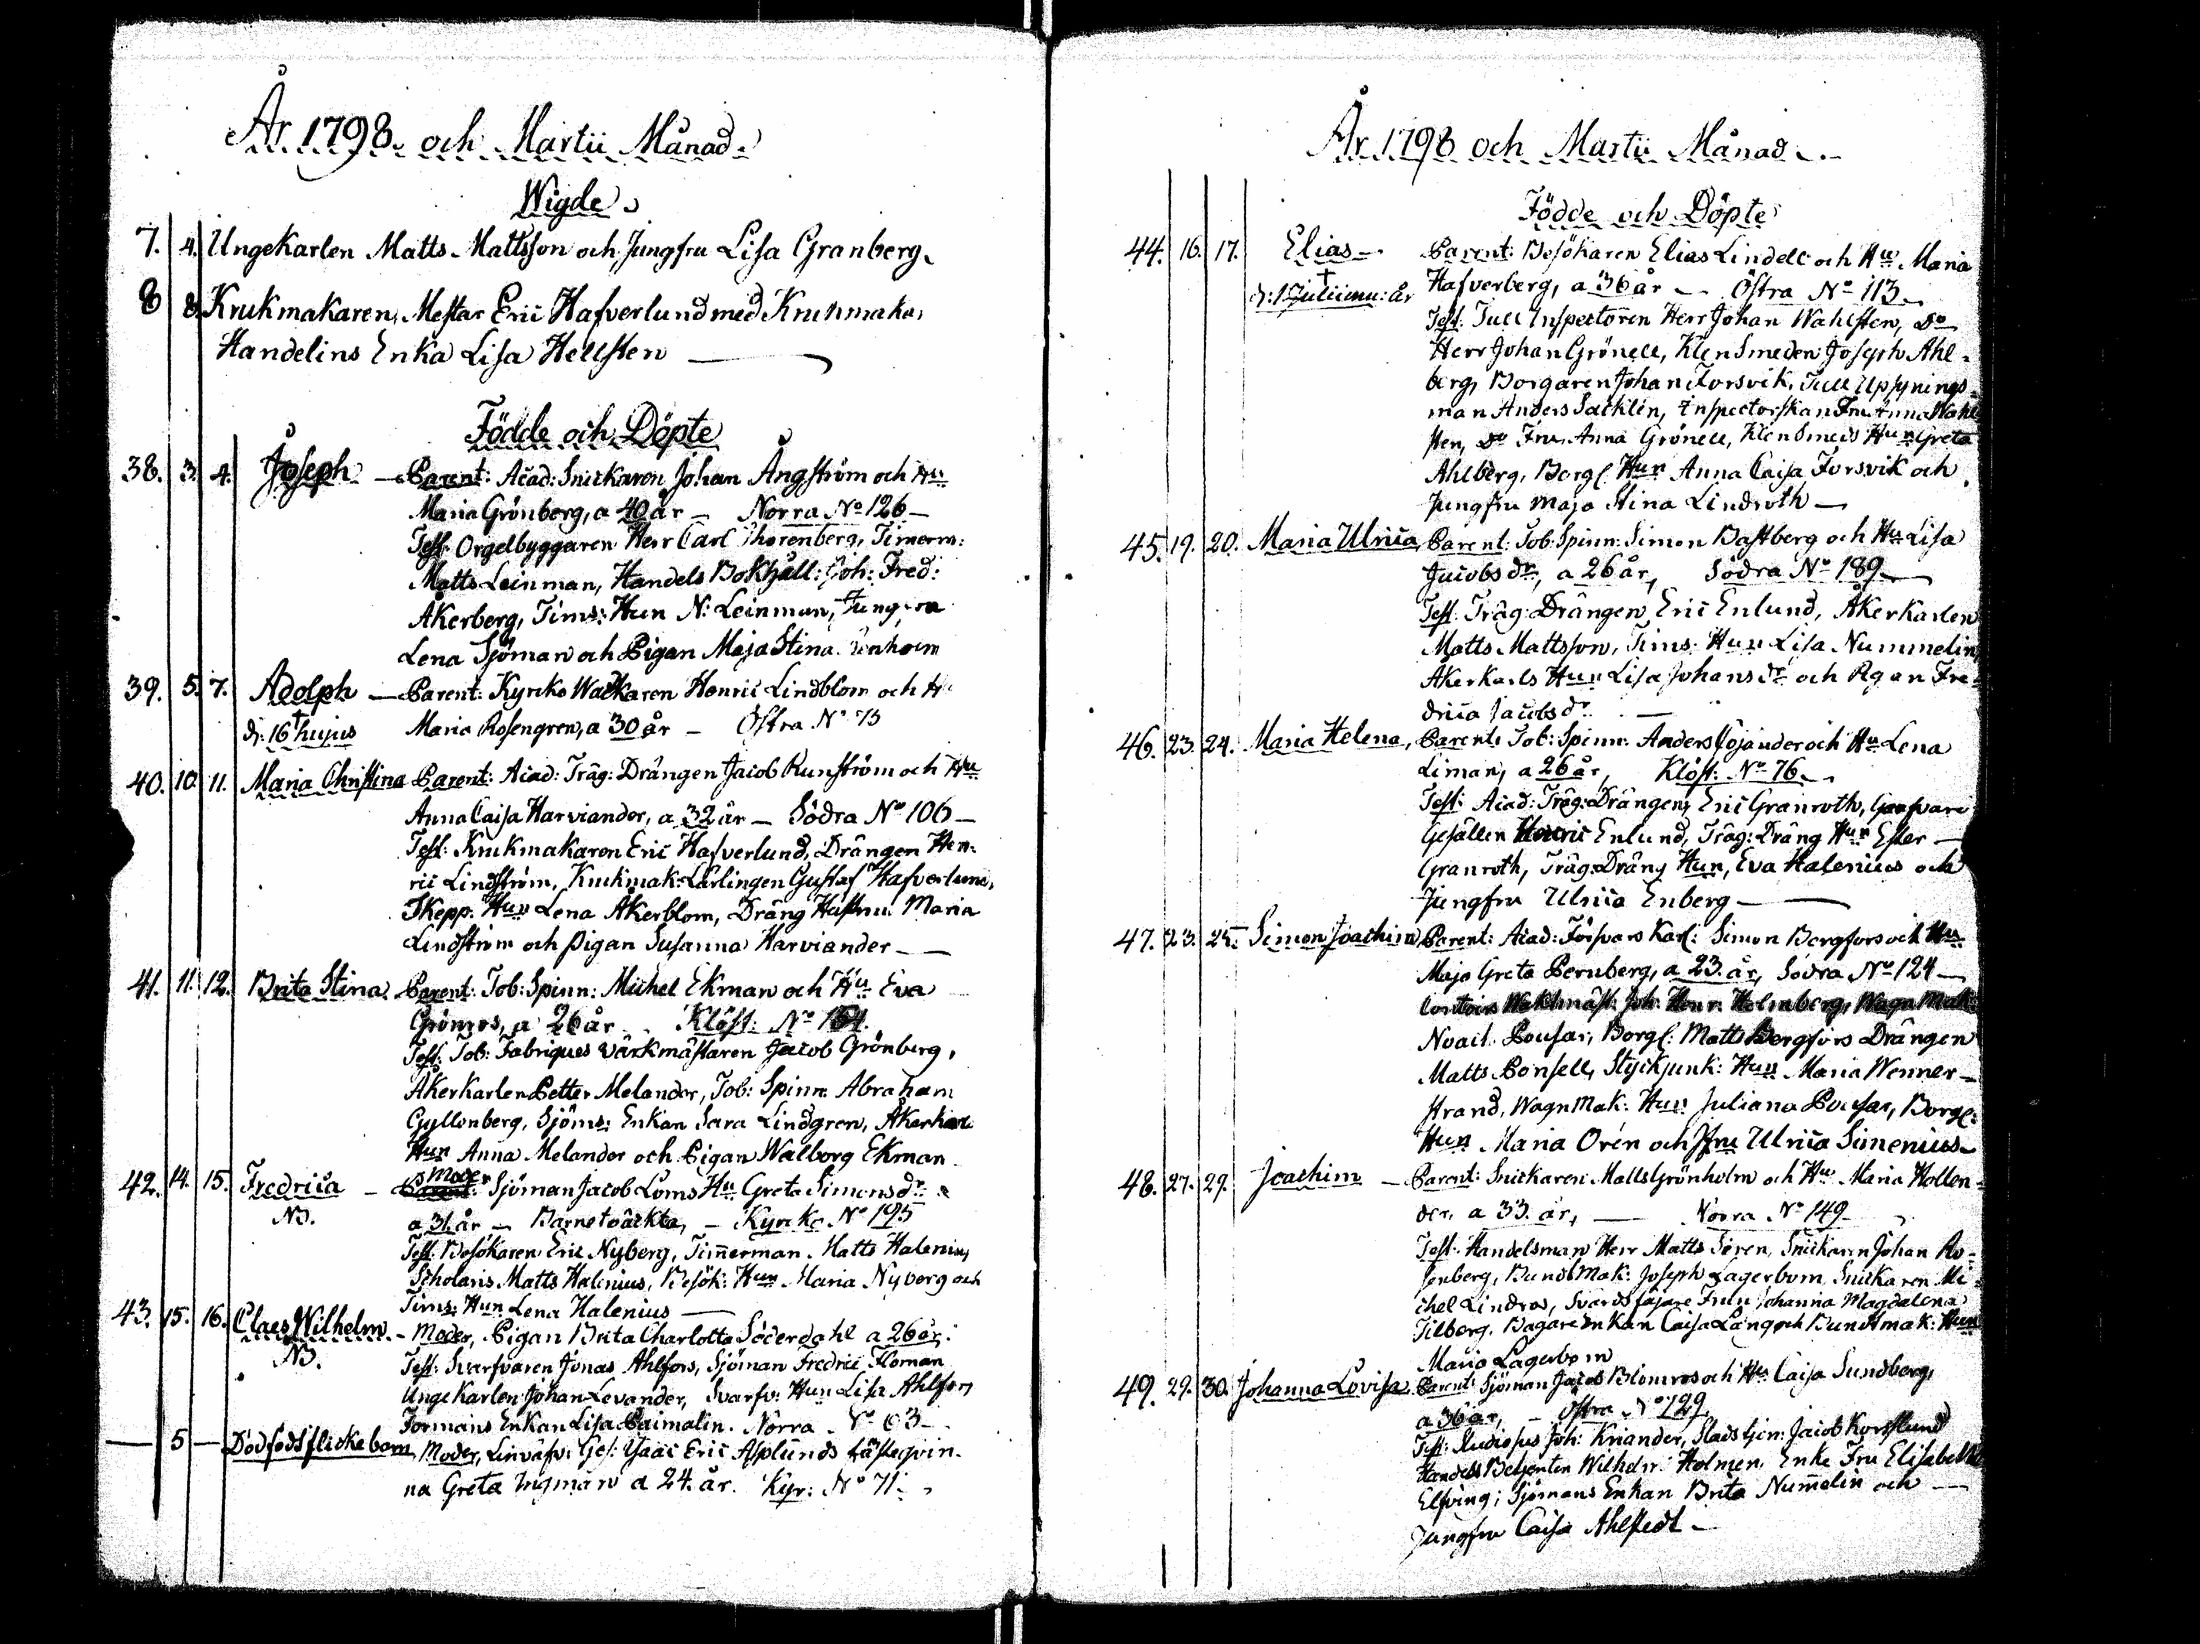 År 1798. och Martii Månad.
Wigde.
7. 4. Ungekarlen Matts Mattsson och Jungfru Lisa Granberg.
8 8. Krukmakaren, Mestar Eric Hafverlund med Krukmaka,
Handelins Enka Lisa Hellsten
Födde och Döpte
38. 3. 4. Joseph — Parent: Acad: Snickaren Johan Ångström och Hu
Maria Grönberg, a 40 år — Norra No 126 —
Test: Orgelbyggaren Herr Carl Thorenberg, Timerm:
Matts Leinman, Handels Bokhåll: Joh: Fred:
Åkerberg, Tims: Hun N: Leinman,
Lena Sjöman och Pigan Maja Stina
39. 5. 7. Adolph — Parent: Kyrko Wacktaren Henric Lindblom och H
d: 16 hujus † Maria Rosengren, a 30 år — Östra No 75
40. 10. 11. Maria Christina Parent: Acad: Träg: Drängen Jacob Runström och Hu
Anna Caisa Harviander, a 32 år — Södra No 106 —
Test: Krukmakaren Eric Hafverlund, Drängen Hen-
ric Lindström, Krukmak: Lärlingen Gustaf Hafverlund,
Skepp. Hun Lena Åkerblom, Dräng Hustru Maria
Lindström och Pigan Susanna Harviander —
41. 11. 12. Brita Stina. Parent: Tob: Spinn: Michel Ekman och Hu Eva
Grönros, a 26 år. Klöst: No
Test: Tob: Fabriques Värkmästaren Jacob Grönberg,
Åkerkarlen Petter Melander, Tob: Spinn: Abraham
Gyllenberg, Sjöms: Enkan Sara Lindgren, Åkerkarl
Hun Anna Melander och Pigan Walborg Ekman
42. 14. 15. Fredrica — Moder Sjöman Jacob Loms Hu Greta Simonsdr
NB. a 31 år — Barnet oäckta, — Kyrko No 195
Test: Besökaren Eric Nyberg, Timerman Matts Halenius,
Scholaris Matts Halenius, Besök: Hun Maria Nyberg och
Tims: Hun Lena Halenius —
43. 15. 16. Claes Wilhelm. — Moder, Pigan Brita Charlotta Söderdahl a 26 år.
NB. Test: Svarfvaren Jonas Ahlfors, Sjöman Fredric Floman
Ungekarlen Johan Levander, Svarfv: Hun Lisa Ahlfors
Formans Enkan Lisa Paimalin. Norra No 63 —
— 5 — Dödfödt flickebarn, Moder, Linväfv: Ges: Isaac Eric Asplunds fästeqvin-
na Greta Ingman a 24. år. Kyr: No 71.
År 1798 och Martii Månad.
Födde och Döpte
44. 16. 17. Elias — Parent: Besökaren Elias Lindell och Hu Maria
† d: 1 Julii innu: år Hafverberg, a 36 år — Östra No 113 —
Test: Tull Inspectoren Herr Johan Wahlsten, Do
Herr Johan Grönell, Klensmeden Joseph Ahl-
berg, Borgaren Johan Forsvik, Tull Upsynings-
man Anders Sacklén, Inspectorskan Fru Anna Wahl
sten, Do Fru Anna Grönell, Klensmeds Hun Greta
Ahlberg, Borgl. Hun Anna Caisa Forsvik och
Jungfru Maja Stina Lindroth —
45. 19. 20. Maria Ulrica, Parent: Tob: Spinn: Simon Bastberg och Hu Lisa
Jacobsdr, a 26 år, Södra No 189 —
Test: Träg: Drängen, Eric Enlund, Åkerkarlen
Matts Mattsson, Tims: Hun Lisa Nummelin,
Åkerkarls Hun Lisa Johansdr och Pigan Fre-
drica Jacobsdr —
46. 23. 24. Maria Helena, Parent: Tob: Spinn: Anders Cöjander och Hu Lena
Liman, a 26 år, Klöst: No 76 —
Test: Acad: Träg: Drängen, Eric Granroth, Garfvare
Gesällen Henric Enlund, Träg: Dräng Hun Ester —
Granroth, Träg: Dräng Hun, Eva Halenius och
Jungfru Ulrica Enberg —
47. 23. 25. Simon Joachim, Parent: Acad: Försvars Karl: Simon Bergfors och Hu
Maja Greta Pernberg, a 23 år, Södra No 124 —
Contoirs Wacktmäst: Joh: Henr: Holmberg, Wagn Mak:
Pousar, Borgl: Matts Bergfors Drängen
Matts Ponsell, Styckjunk: Hun Maria Wenner —
strand, Wagn Mak: Hun Juliana Pousar, Borgl:
Hun Maria Orén och Jfru Ulrica Simenius —
48. 27. 29. Joachim — Parent: Snickaren Matts Grönholm och Hu Maria Hollen-
der, a 33. år, — Norra No 149 —
Test: Handelsman Herr Matts Sören, Snickaren Johan Ro-
senberg, Bundtmak: Joseph Lagerbom, Snickaren Mi-
chel Lindros, Svärdsfäjare Frun Johanna Magdalena
Tilberg, Bagare Enkan Caisa Lång och Bundtmak: Hun
Maria Lagerbom
49. 29. 30. Johanna Lovisa, Parent: Sjöman Jacob Blomros och Hu Caisa Sundberg,
a 36 år, — Östra No 129.
Test: Studiosus Joh: Kriander, Stads tjen: Jacob Korslund
Handels Betjenten Wilhelm Holmen, Enke Fru Elisabeth
Elfving; Sjömans Enkan Brita Numelin och —
Jungfru Caisa Ahlstedt —